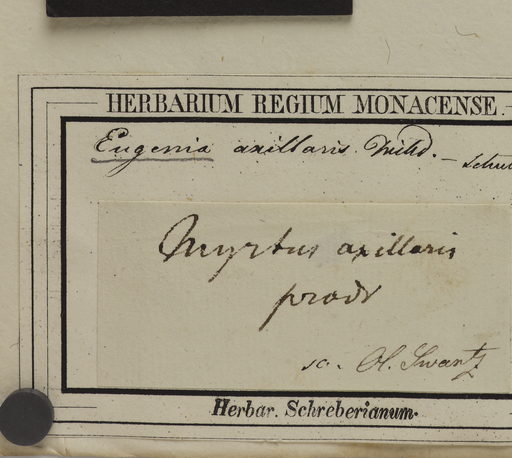 HERBARIUM REGIUM MONACENSE.
Eugenia axillaris Willd. —
Myrtus axillaris
prodr
Ol. Swartz
Herbar. Schreberianum.